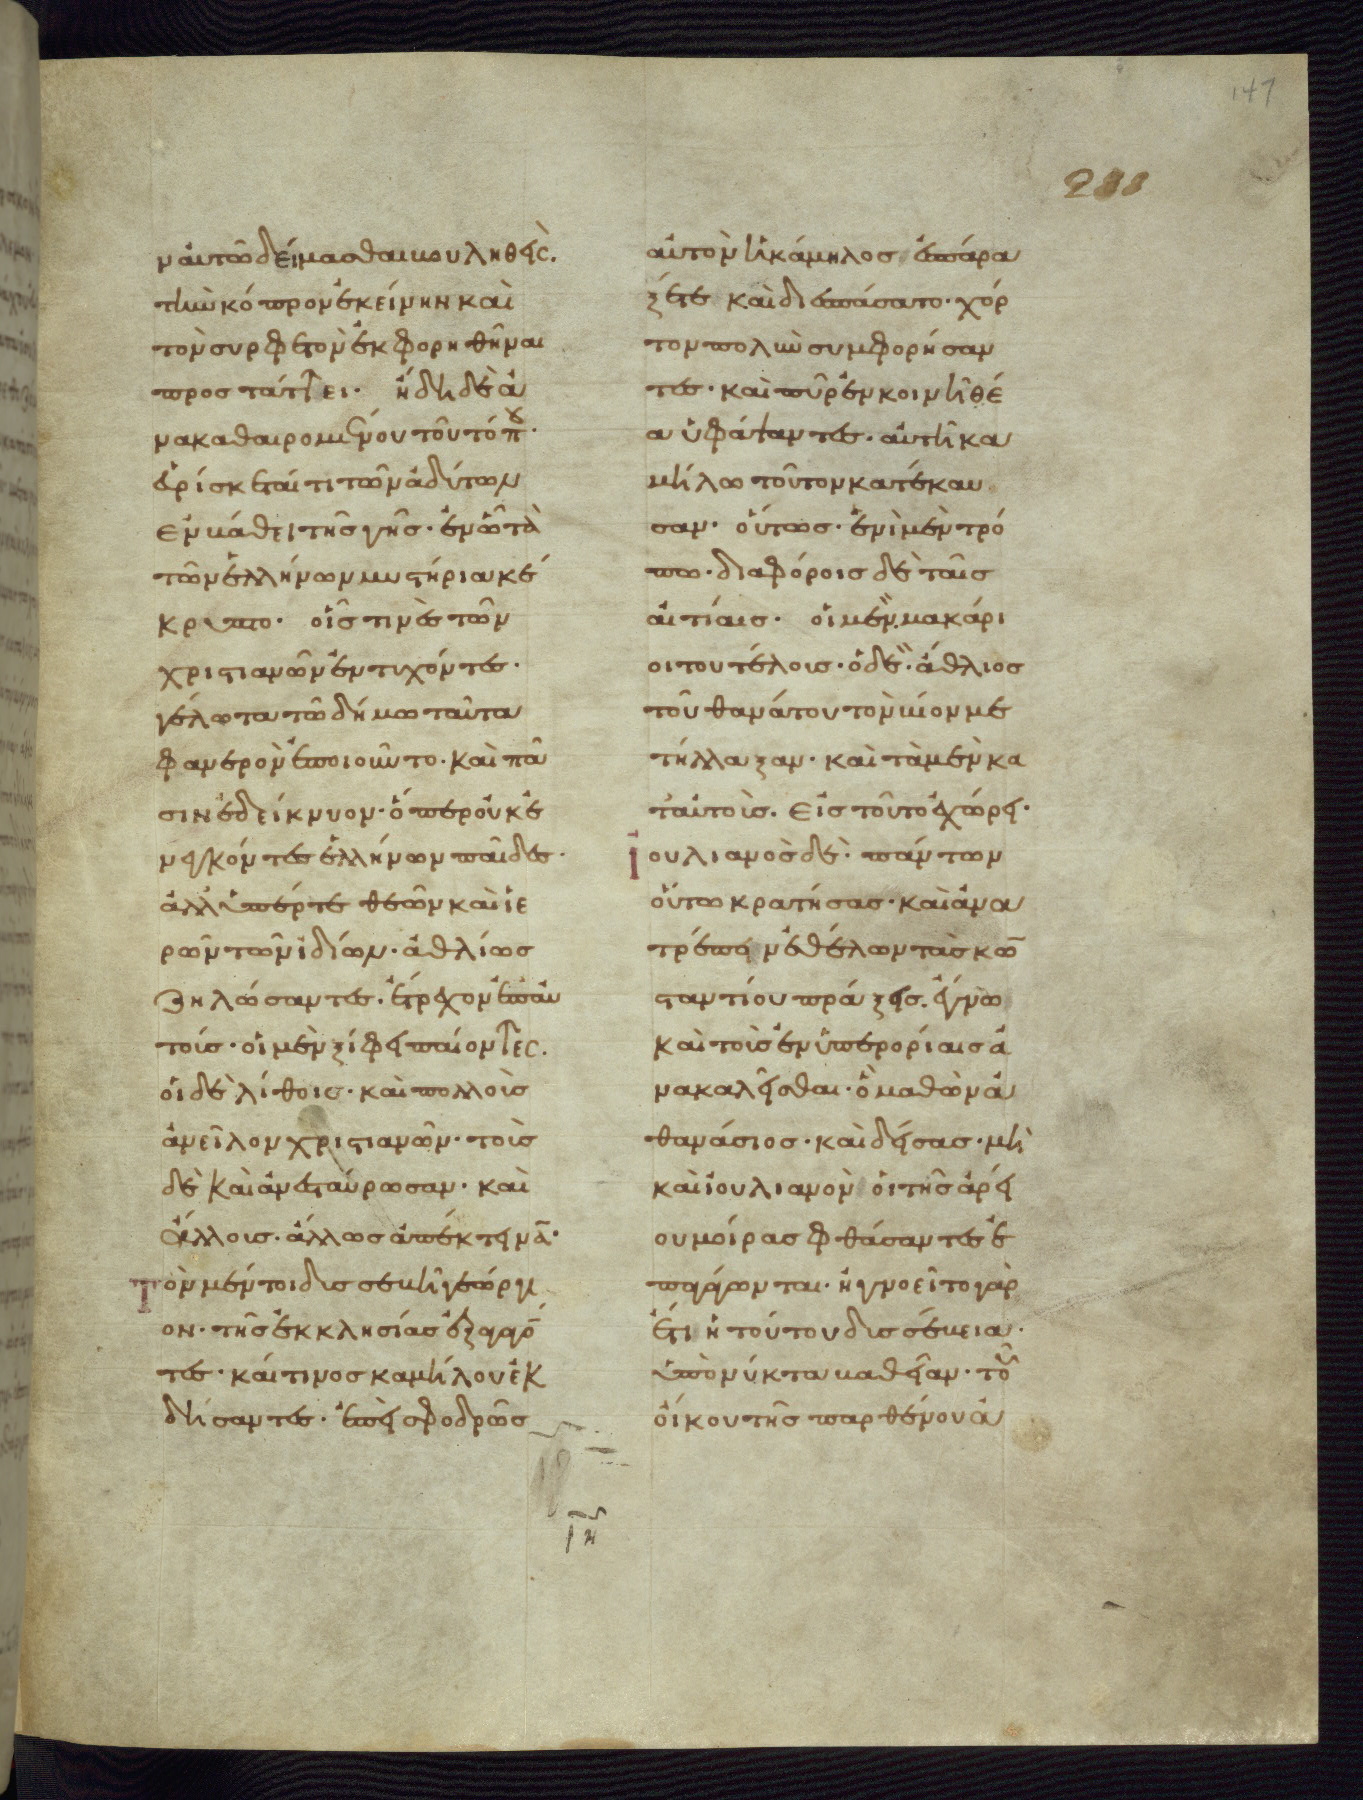 147
288
ν αὐτῶ δείμασθαι βουληθεὶς.
τὴν κόπρον ἐκείνην καὶ
τὸν συρφετὸν ἐκφορηθῆναι
προστάττει. ἤδη δὲ ἀ
νακαθαιρομένου τοῦ τόπου.
εὑρίσκεταί τι τῶν ἀδύτων
ἐν βάθει τῆς γῆς. ἐν ὧ τὰ
τῶν ἑλλήνων μυστήρια κέ
κρυπτο. οἷς τινὲς τῶν
χριστιανῶν ἐντυχόντες.
γέλωτα τῶ δήμω ταῦτα
φανερὸν ἐποιοῦντο. καὶ πᾶ
σιν ἐδείκνυον. ὅπερ οὐκ ἐ
νεγκόντες ἑλλήνων παῖδες.
ἀλλ' ὑπέρ τε θεῶν καὶ ἱε
ρῶν τῶν ἰδίων. ἀθλίως
ζηλώσαντες. ἔτρεχον ἐπ' αὐ
τοίς. οἱ μὲν ξίφει παίοντες.
οἱ δὲ λίθοις. καὶ πολλοὺς
ἀνεῖλον χριστιανῶν. τοὺς
δὲ καὶ ἀνεσταύρωσαν. καὶ
ἄλλοις. ἄλλως ἀπέκτεινᾱ.
Τὸν μέντοι δυσσεβῆ γεώργι
ον. τῆς ἐκκλησίας ἐξειρό̄
τες. καί τινος καμήλου ἐκ
δήσαντες. ἐπεὶ σφοδρῶς
αὐτὸν ἡ κάμηλος ἐσπάρα
ξέ τε καὶ διεσπάσατο. χόρ
τον πολὺν συμφορήσαν
τες. καὶ πῦρ ἐν κοινῆ θέ
α ὑφάψαντες. αὐτῆ κα
μήλω τοῦτον κατέκαυ
σαν. οὕτως. ἑνὶ μὲν τρό
πω. διαφόροις δὲ ταῖς
αἰτίαις. οἱ μὲν μακάρι
οι του τέλους. ὁ δὲ. ἄθλιος
τοῦ θανάτου τὸν βίον με
τήλλαξαν. καὶ τὰ μὲν κα
τ' αὐτοὺς. εἰς τοῦτο ἐχώρει.
Ιουλιανὸς δὲ. πάντων
οὕτω κρατήσας. καὶ ἀνα
τρέπειν ἐθέλων τὰς κω̄
σταντίου πράξεις. ἔγνω
καὶ τοὺς ἐν ὑπερορίαις ἀ
νακαλεῖσθαι. ὃ μαθὼν ἀ
θανάσιος. καὶ δείσας. μὴ
καὶ ἰουλιανὸν οἱ τῆς ἀρεί
ου μοίρας φθάσαντες ἐ
παείρωνται. ἠγνοεῖτο γὰρ
ἔτι ἡ τούτου δυσσέβεια.
ὑπὸ νύκτα βαθεῖαν. τοῦ
οἴκου τῆς παρθένου ἀ
ιη